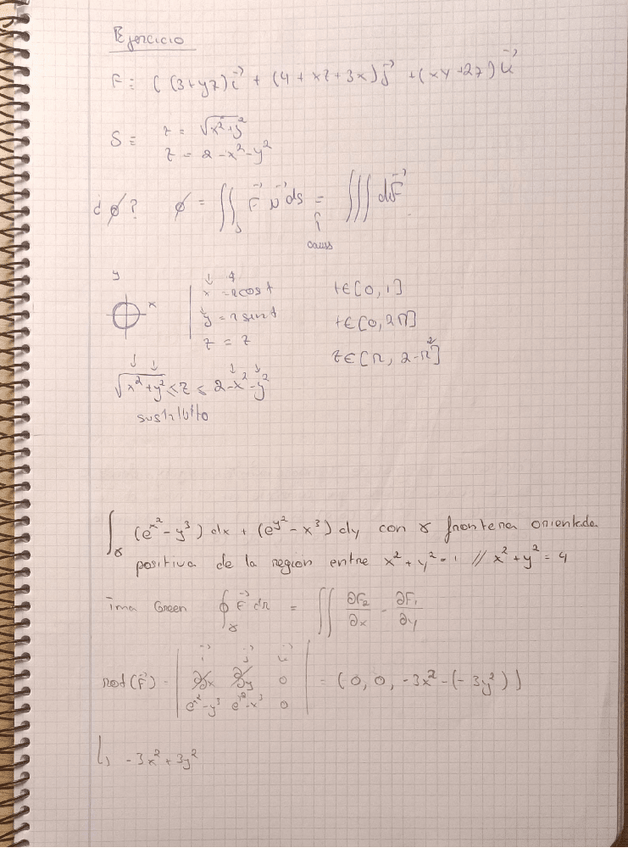 Ejercicio
F = ( (3+yz) i + (4 + xz + 3x) j + (xy + 2z) k
S = z = √x²+y²
z = 2 - x² - y²
¿ Ø ? Ø = ∬s F N ds = ∭ div F
Gauss
y
x
x = r cos t
y = r sin t
z = z
t ∈ [0, 1]
t ∈ [0, 2π]
z ∈ [r, 2-r²]
√x²+y² ≤ z ≤ 2-x²-y²
sustituto
∫γ (e^x² - y³) dx + (e^y² - x³) dy con γ frontera orientada
positiva de la region entre x² + y² = 1 // x² + y² = 4
Tma Green ∮γ F dr = ∬ ∂F₂/∂x - ∂F₁/∂y
rot(F) = | i j k
∂/∂x ∂/∂y 0 | = (0, 0, -3x² - (-3y²))
e^x² - y³ e^y² - x³ 0
↳ -3x² + 3y²